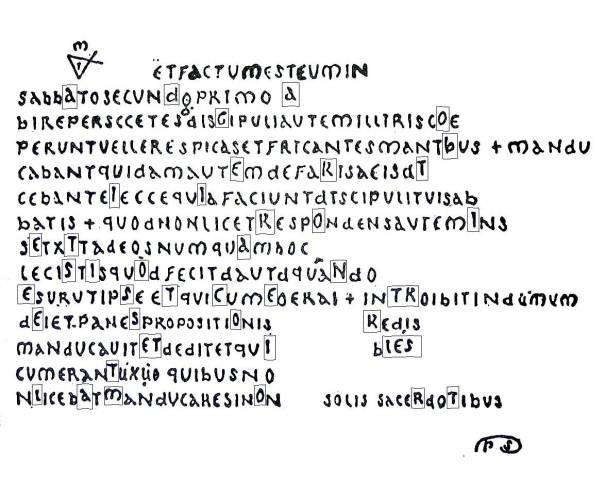 ETFACTUMESTEUMIN
SABBATOSECUNDOPRIMO A
BIREPERSCCETESDISGIPULIAUTEMILLITRISCOE
PERUNTVELLERESPICASETFRICANTESMANTBUS + MANDU
CABANTQUIDAMAUTEMDEFARISAEISDT
CEBANTEIECCEQUIAFACIUNTDISCIPULITUISAB
BATIS + QUODNONLICETRESPONDENSAUTEMINS
SETXTTADEOSNUMQUAMHOC
LECISTISQUODFECITDAUTDQUANDO
ESURUTIPSEETQUICUMEOERAI + INTROIBITINDUMUM
DEIETPANESPROPOSITIONIS REDIS
MANDUCAUITETDEDITETQUI BLES
CUMERANTUXUO QUIBUSNO
NLICEBATMANDUCARESINON SOLIS SACERDOTIBUS
PS